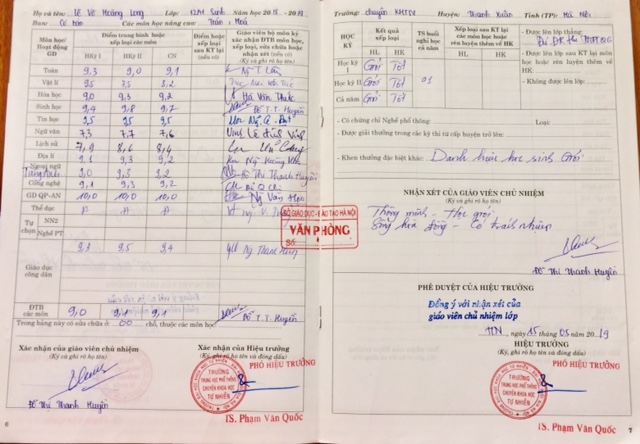 Họ và tên: Lê Võ Hoàng Long Lớp: 12A1 Sinh Năm học 2018 - 2019
Ban: Cơ bản Các môn học nâng cao: Toán, Hoá
Môn học/ Hoạt động GD
Điểm trung bình hoặc xếp loại các môn
HKỳ I HKỳ II CN
Điểm hoặc xếp loại sau KT lại (nếu có)
Giáo viên bộ môn ký xác nhận ĐTB môn học, xếp loại, sửa chữa hoặc nhận xét (nếu có)
(Ký và ghi rõ họ tên)
Toán 9,3 9,0 9,1
Vật lí 9,5 7,5 8,2
Hóa học 9,0 9,3 9,2
Sinh học 9,4 9,8 9,7 Đ.T.T. Huyền
Tin học 9,5 9,5 9,5
Ngữ văn 7,3 7,7 7,6
Lịch sử 7,9 8,6 8,4
Địa lí 9,1 9,3 9,2
Ngoại ngữ Tiếng Anh 9,0 9,3 9,2
Công nghệ 9,1 9,3 9,2
GD QP-AN 10,0 10,0 10,0
Thể dục Đ Đ Đ
Tự chọn NN2
Nghề PT
9,3 9,5 9,4
Giáo dục công dân
ĐTB các môn 9,0 9,1 9,1 Đỗ T.T. Huyền
Trong bảng này có sửa chữa ở 00 chỗ, thuộc các môn học:
Xác nhận của giáo viên chủ nhiệm
(Ký và ghi rõ họ tên)
Đỗ Thị Thanh Huyền
Xác nhận của Hiệu trưởng
(Ký, ghi rõ họ tên và đóng dấu)
PHÓ HIỆU TRƯỞNG
TRƯỜNG
TRUNG HỌC PHỔ THÔNG
CHUYÊN KHOA HỌC
TỰ NHIÊN
TS. Phạm Văn Quốc
6
SỞ GIÁO DỤC - ĐÀO TẠO HÀ NỘI
VĂN PHÒNG
Số:
Trường: chuyên KHTN Huyện: Thanh Xuân Tỉnh (TP): Hà Nội
HỌC KỲ
Kết quả xếp loại
HL HK
TS buổi nghỉ học cả năm
Xếp loại sau KT lại môn học hoặc rèn luyện thêm về HK
HL HK
Học kỳ I Giỏi Tốt
Học kỳ II Giỏi Tốt 01
Cả năm Giỏi Tốt
- Được lên lớp thẳng:
- Được lên lớp sau KT lại môn học hoặc rèn luyện thêm về HK:
- Không được lên lớp:
- Có chứng chỉ Nghề phổ thông: Loại:
- Được giải thưởng trong các kỳ thi từ cấp huyện trở lên:
- Khen thưởng đặc biệt khác: Danh hiệu học sinh Giỏi
NHẬN XÉT CỦA GIÁO VIÊN CHỦ NHIỆM
Thông minh - Học giỏi
Sống hòa đồng - Có trách nhiệm
Đỗ Thị Thanh Huyền
PHÊ DUYỆT CỦA HIỆU TRƯỞNG
Đồng ý với nhận xét của
giáo viên chủ nhiệm lớp
HN, ngày 25 tháng 05 năm 2019
HIỆU TRƯỞNG
(Ký, ghi rõ họ tên và đóng dấu)
PHÓ HIỆU TRƯỞNG
TRƯỜNG
TRUNG HỌC PHỔ THÔNG
CHUYÊN KHOA HỌC
TỰ NHIÊN
TS. Phạm Văn Quốc
7